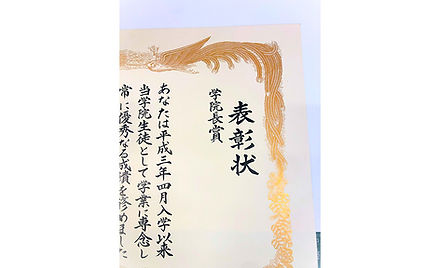 表彰状
学院長賞
あなたは平成三年四月入学以来
当学院生徒として学業に専念し
常に優秀なる成績を修めました